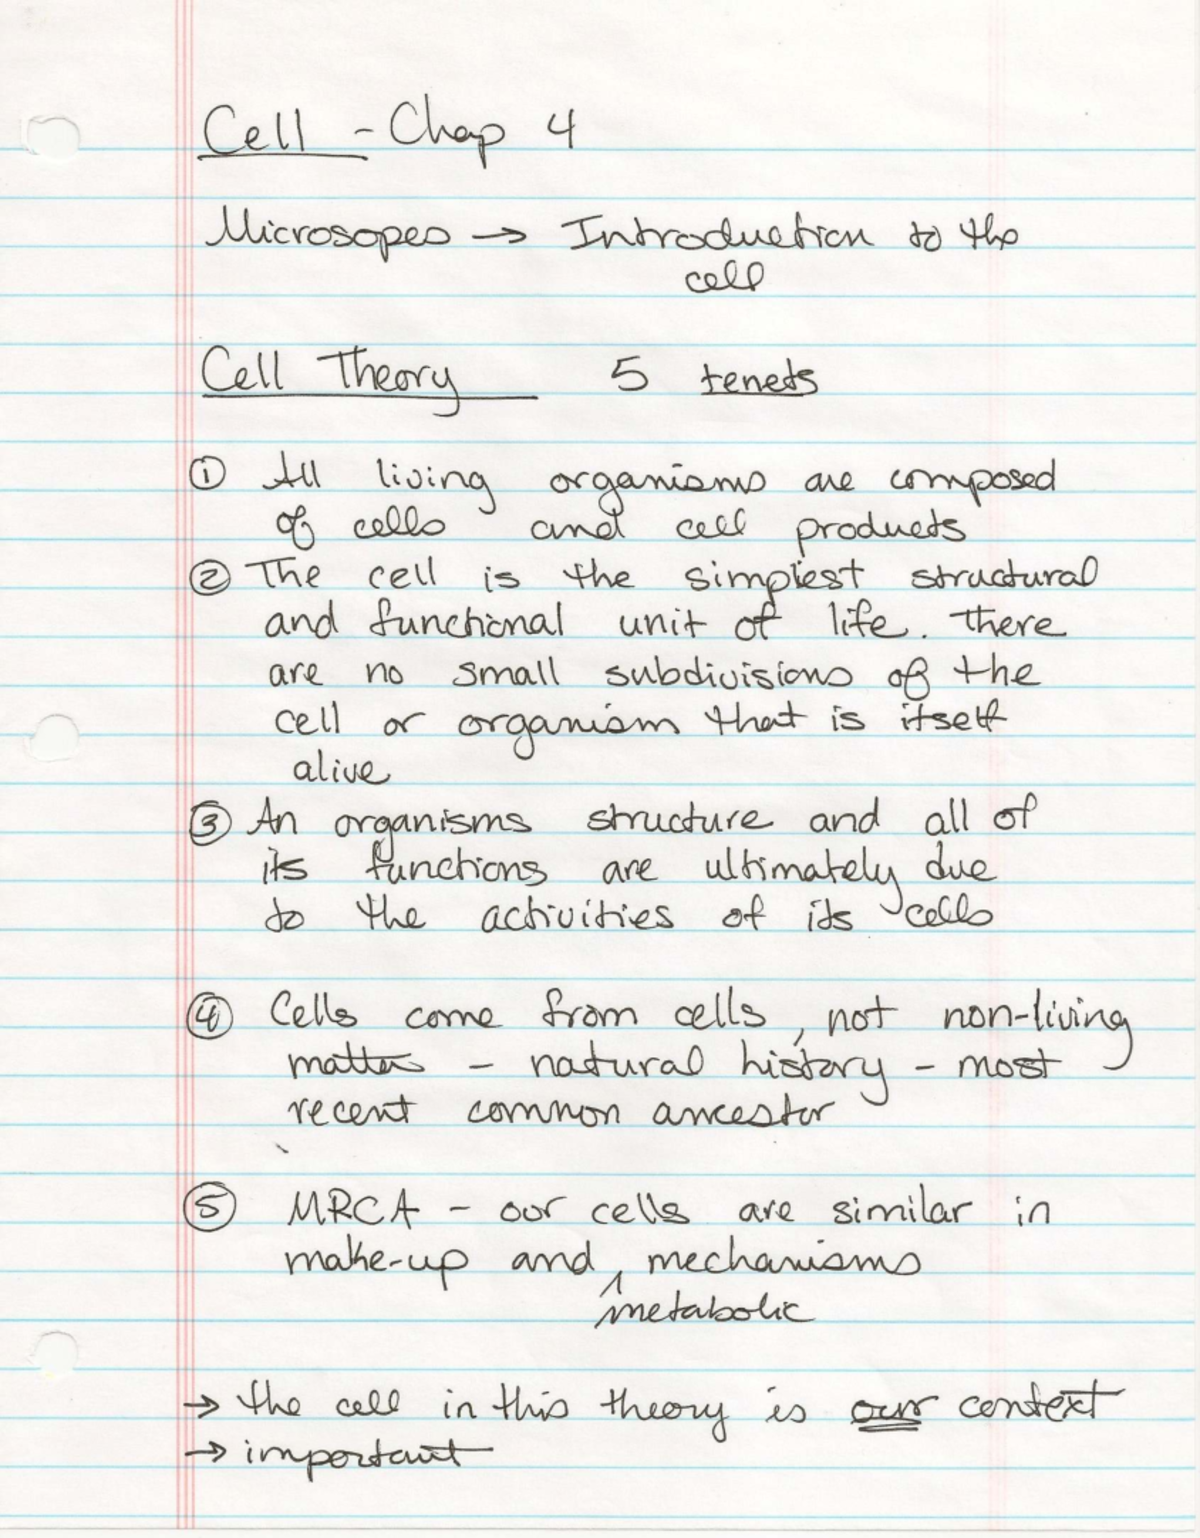 Cell - Chap 4
Microsopes → Introduction to the
cell
Cell Theory 5 tenets
① All living organisms are composed
of cells and cell products
② The cell is the simplest structural
and functional unit of life. There
are no small subdivisions of the
cell or organism that is itself
alive
③ An organisms structure and all of
its functions are ultimately due
to the activities of its cells
④ Cells come from cells, not non-living
matter - natural history - most
recent common ancestor
⑤ MRCA - our cells are similar in
make-up and ^ mechanisms
metabolic
→ the cell in this theory is our context
→ important